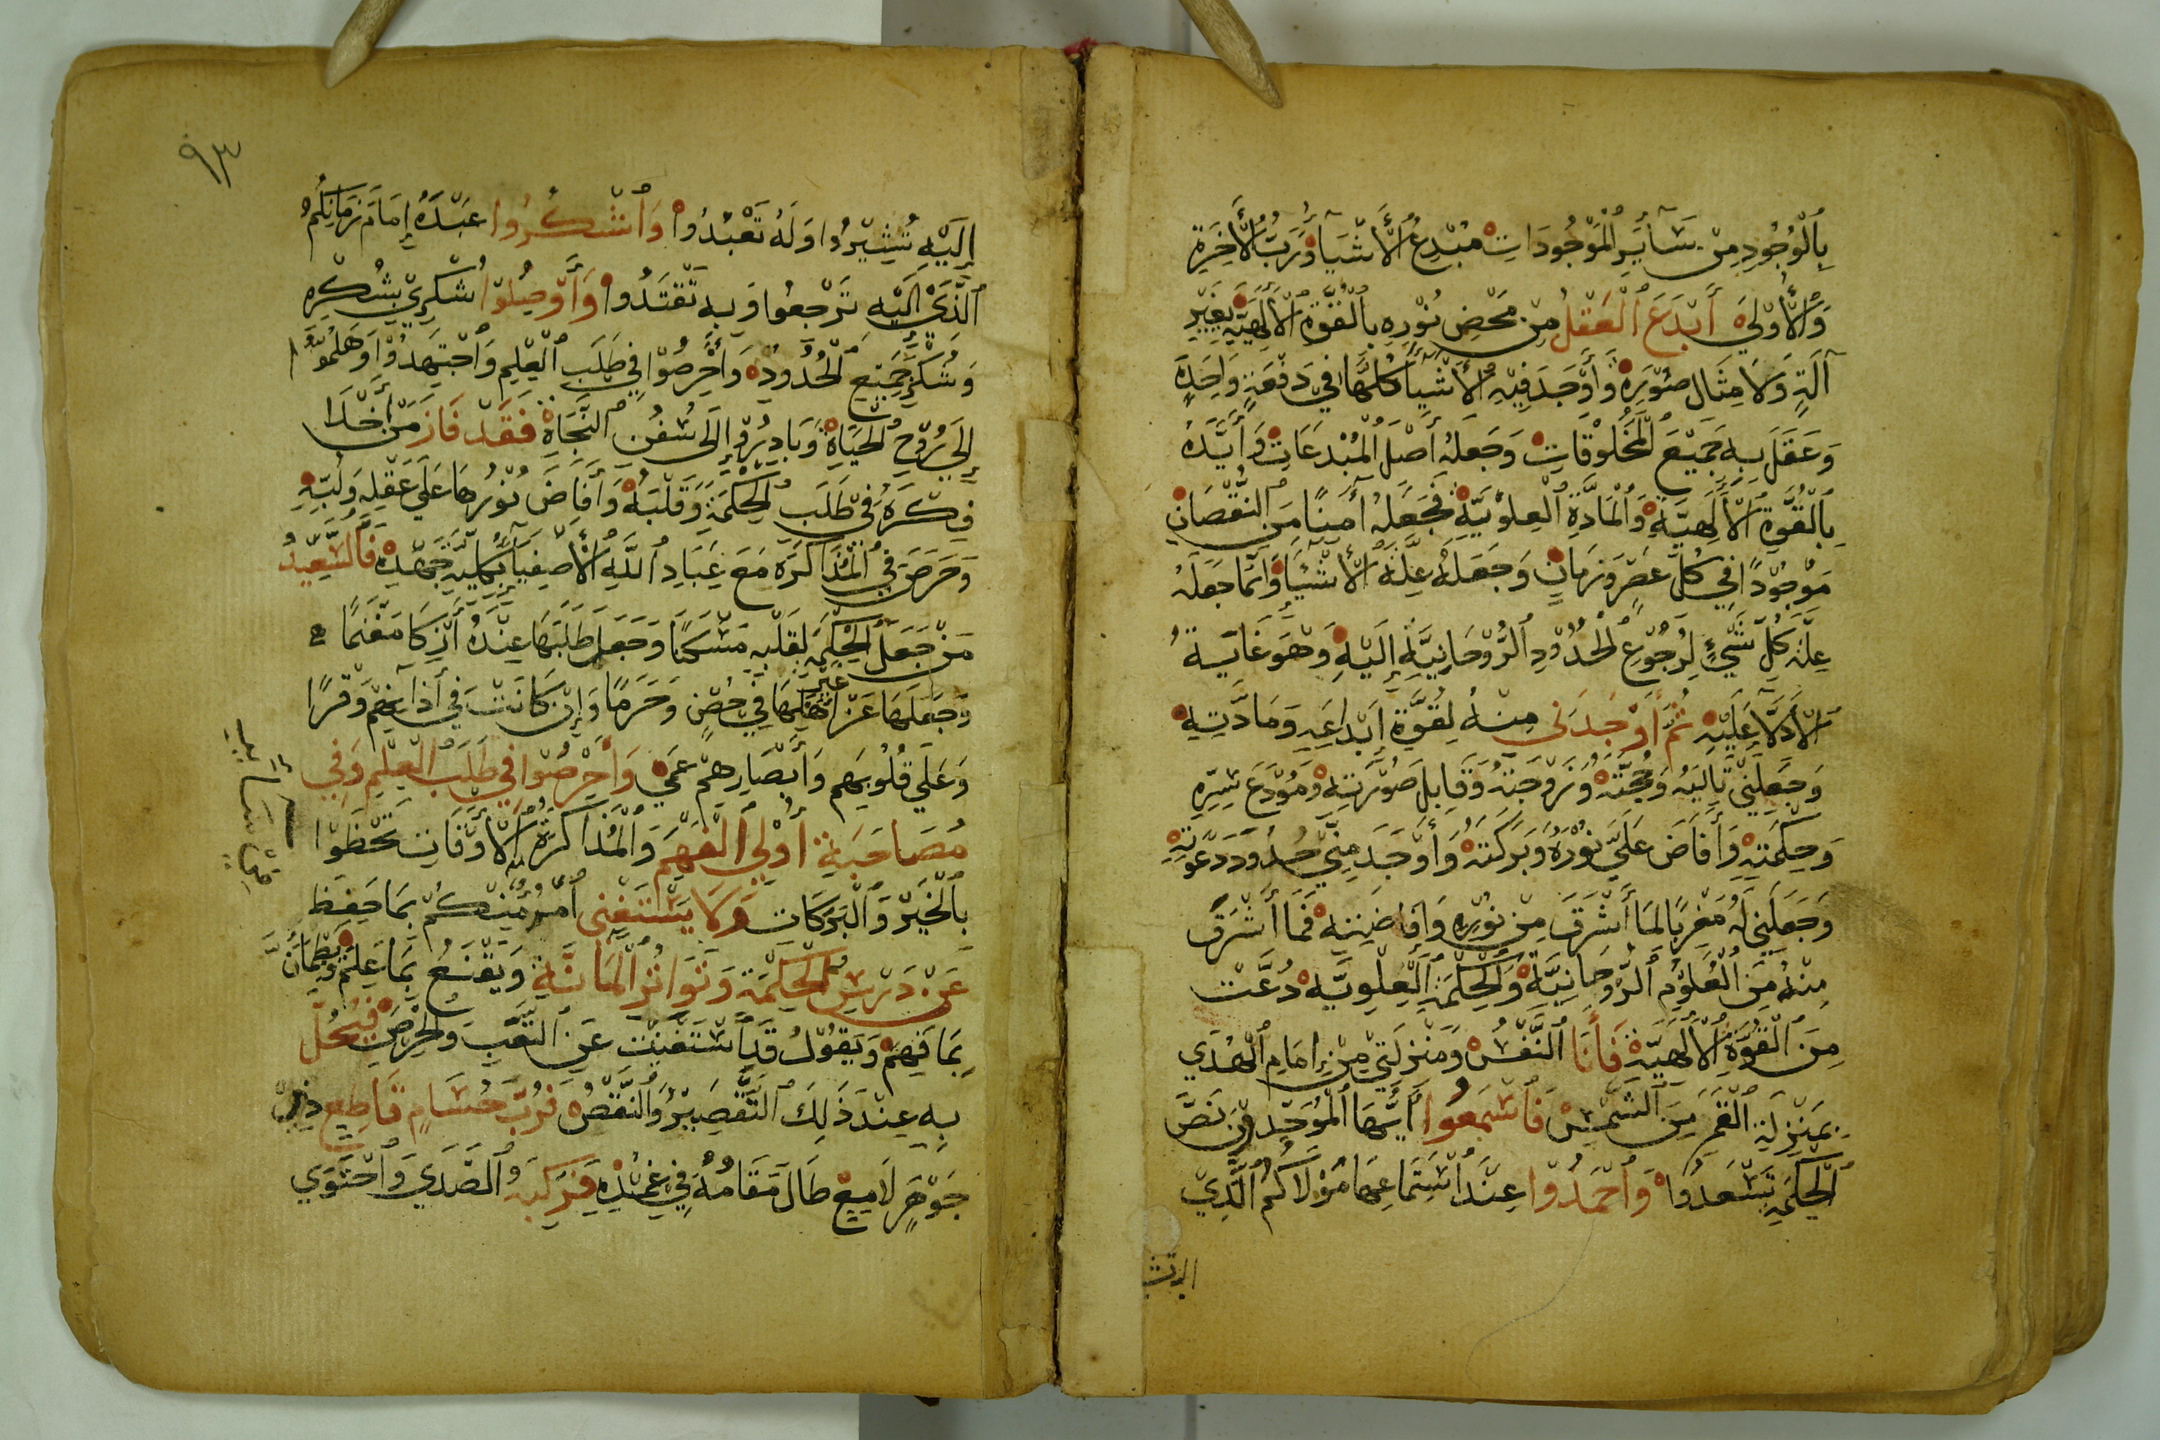 بِالْوُجُودِ مِنْ سَآيِرِ الْمَوْجُودَاتِ مُبْدِعُ الْأَشْيَآءِ وَرَبُّ الْآخِرَةِ
وَالْأُوْلَي أَبْدَعَ الْعَقْلَ مِنْ مَحْضِ نُوْرِهِ بِالْقُوَّةِ الْأَلَهِيَّةِ بِغَيْرِ
آلَةٍ وَلَا مِثَالِ صُوْرَةٍ وَأَوْجَدَ فِيْهِ الْأَشْيَآءَ كُلَّهَا فِي دَفْعَةٍ وَاحِدَةٍ
وَعَقَلَ بِهِ جَمِيْعَ الْمَخْلُوْقَاتِ وَجَعَلَهُ أَصْلَ الْمُبْدَعَاتِ وَأَيَّدَهُ
بِالْقُوَّةِ الْأَلَهِيَّةِ وَالْمَادَّةِ الْعِلْوِيَّةِ فَجَعَلَهُ آمِنًا مِنَ النُّقْصَانِ
مَوْجُوْدًا فِي كُلِّ عَصْرٍ وَزَمَانٍ وَجَعَلَهُ عِلَّةَ الْأَشْيَآءِ وَإِنَّمَا جَعَلَهُ
عِلَّةَ كُلِّ شَيْءٍ لِرُجُوْعِ الْحُدُوْدِ الرُّوْحَانِيَّةِ إِلَيْهِ وَهُوَ غَايَةُ
الْأَدِلَّآءِ عَلَيْهِ ثُمَّ أَوْجَدَنِي مِنْهُ لِقُوَّةِ إِبْدَاعِهِ وَمَادَّتِهِ
وَجَعَلَنِيْ تَالِيَهُ وَحُجَّتَهُ وَزَوْجَتَهُ وَقَابِلَ صُوْرَتِهِ وَمَوْدَعَ سِرِّهِ
وَحِكْمَتِهِ وَأَفَاضَ عَلَيَّ نُوْرَهُ وَبَرَكَتَهُ وَأَوْجَدَ مِنِّي حُدُوْدَ دَعْوَتِهِ
وَجَعَلَنِي لَهُ مَغْرِبًا لِمَا أَشْرَقَ مِنْ نُوْرِهِ وَإِفَاضَتِهِ فَمَا أَشْرَقَ
مِنْهُ مِنَ الْعُلُوْمِ الرُّوْحَانِيَّةِ وَالْحِكْمَةِ الْعِلْوِيَّةِ دُعَّتْ
مِنَ الْقُوَّةِ الْأَلَهِيَّةِ فَأَنَا النَّفْسُ وَمَنْزِلَتِيْ مِنْ إِمَامِ الْهُدَي
بِمَنْزِلَةِ الْقَمَرِ مِنَ الشَّمْسِ فَاسْمَعُوا أَيُّهَا الْمُوَحِّدُوْنَ نَصَّ
الْحِكْمَةِ تَسْعَدُوا وَاحْمَدُوْا عِنْدَ اسْتِمَاعِهَا مَوْلَاكُمُ الَّذِيْ
إِلَيْهِ تُشِيْرُوا وَلَهُ تَعْبُدُوا وَاشْكُرُوا عَبْدَهُ إِمَامَ زَمَانِكُمُ
الَّذِيْ إِلَيْهِ تَرْجِعُوا وَبِهِ تَقْتَدُوا وَأَوْصِلُوْا شُكْرِيْ بِشُكْرِهِ
وَشُكْرِ جَمِيْعِ الْحُدُوْدِ وَأَحْرِصُوْا فِي طَلَبِ الْعِلْمِ وَاجْتَهِدُوْا وَهَلُمُّوْا
إِلَي رُوْحِ الْحَيَاةِ وَبَادِرُوْا إِلَى سُفُنِ النَّجَاةِ فَقَدْ فَازَ مَنْ أَخْلَا
فِكْرَهُ فِيْ طَلَبِ الْحِكْمَةِ وَقَلْبَهُ وَأَفَاضَ نُوْرُهَا عَلَي عَقْلِهِ وَلُبِّهِ
وَحَرَصَ فِي الْمُذَاكَرَةِ مَعَ عِبَادِ اللَّهِ الْأَصْفِيَآءِ بِكُلِّيَّةِ جَهْدِهِ فَالسَّعِيْدُ
مَنْ جَعَلَ الْحِكْمَةَ لِقَلْبِهِ مَسْكَنًا وَجَعَلَ طَلَبَهَا عِنْدَهُ أَزْكَا مَغْنَمًا
وَجَعَلَهَا عَنْ غَيْرِ أَهْلِهَا فِي حِصْنٍ وَحَرَمًا وَإِنْ كَانَتْ فِي أَذَانِهِمْ وَقْرًا
وَعَلَي قُلُوْبِهِم وَأَبْصَارِهِمْ عَمَي وَأَحْرِصُوْا فِي طَلَبِ الْعِلْمِ وَفِي
مُصَاحَبَةِ أُوْلِي الْفَهْمِ وَالْمُذَاكَرَةِ الْأَوْقَاتِ تَحْظَوْا
بِالْخَيْرِ وَالْبَرَكَاتِ وَلَا يَسْتَغْنِي امْرُؤٌ مِنْكُمْ بِمَا حَفِظَ
عَنْ دَرْسِ الْحِكْمَةِ وَتَوَاتُرِ الْمَآنَّةِ وَيَقْنَعُ بِمَا عَلِمَ وَيَطْمَأَنُّ
بِمَا فَهِمَ وَيَقُوْلُ قَدِ اسْتَغْنَيْتُ عَنِ التَّعَبِ وَالْحِرْصِ فَيَحُلُّ
بِهِ عِنْدَ ذَلِكَ التَّقْصِيْرُ وَالنَّقْصُ فَرُبَّ حُسَامٍ قَاطِعٍ ذِيْ
جَوْهَرٍ لَامِعٍ طَالَ مَقَامُهُ فِي غِمْدِهِ فَرَكِبَهُ الصَّدَي وَاحْتَوَي
٩٣